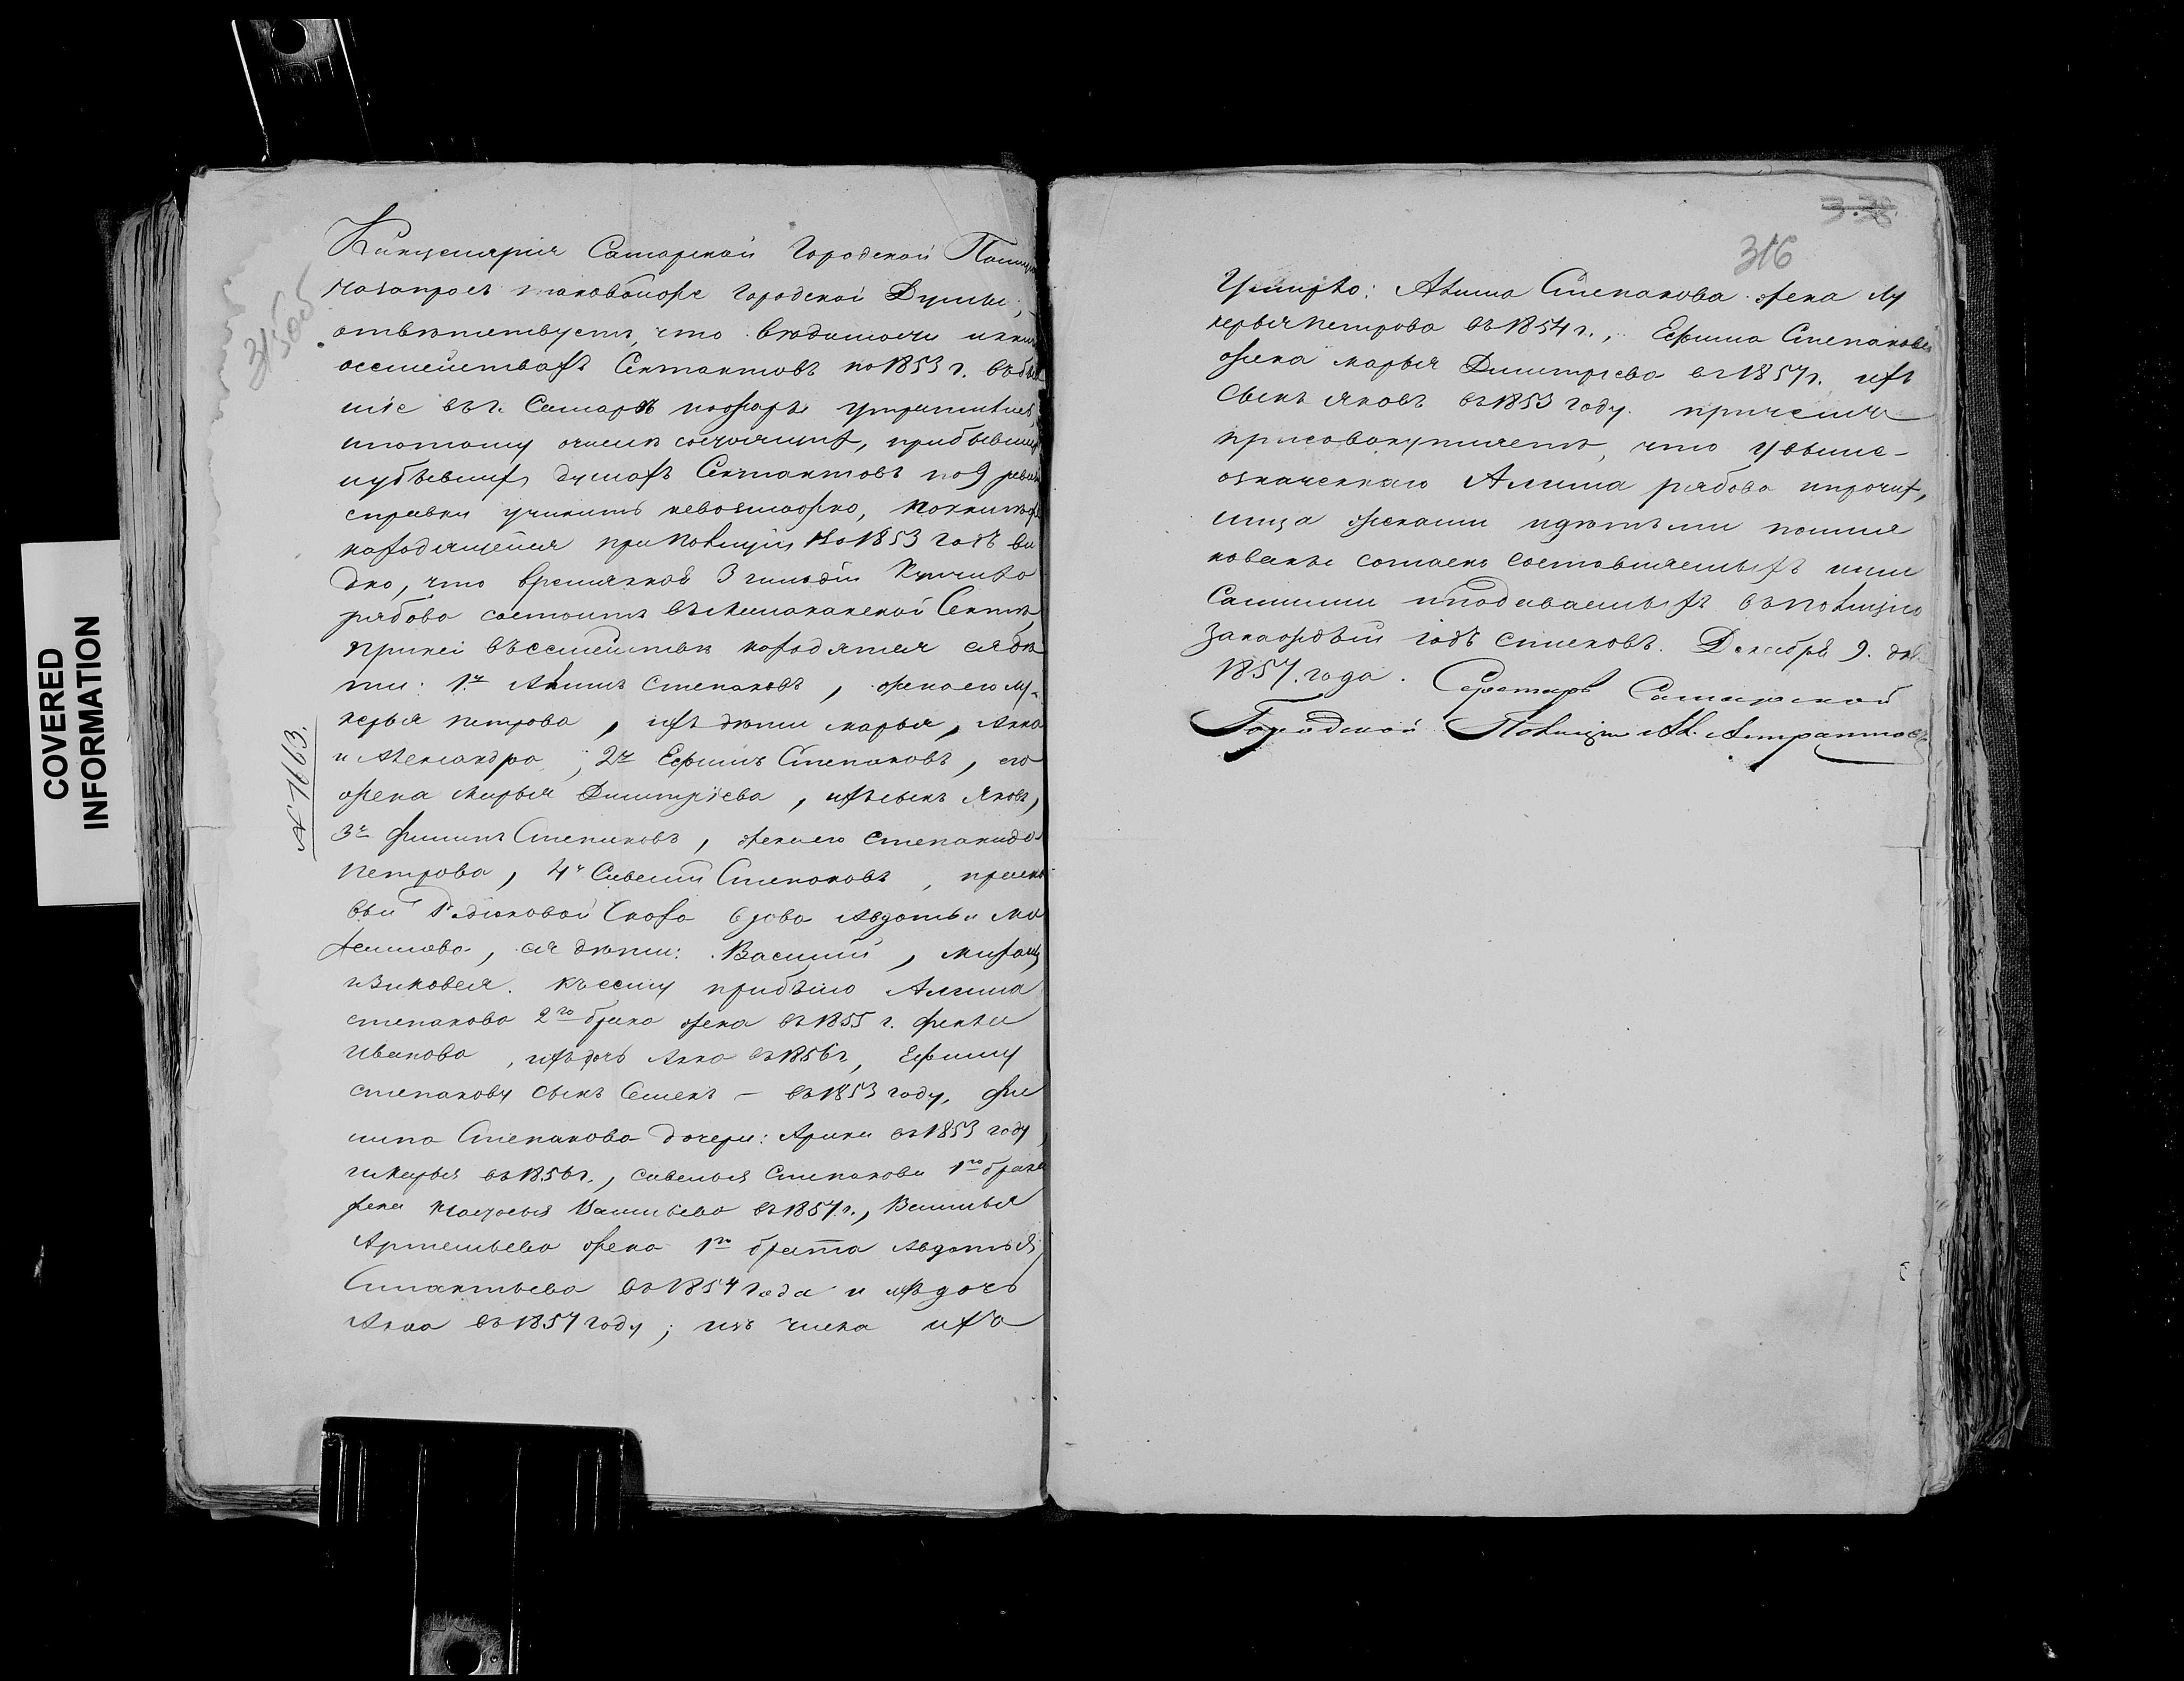 COVERED
INFORMATION
315об
№ 7663.
Канцелярія Самарской Городской Полиціи
на запросъ таковойже Городской Думы,
отвѣтствуетъ, что вѣдомости и книги
осемействахъ Сектантовъ по 1853 г. въ быв
шіе въ г. Самарѣ пожары утратились,
потому о прибывшихъ
иубывшихъ душахъ Сектантовъ по 9 ревизіи
справки учинить невозможно, по книгѣ же
находящейся при Полиціи по 1853 годъ ви
дно, что временной 3 гильдіи Купчиха
рябова состоитъ въ Молоканской Сектѣ,
при ней въсемействѣ находятся ея дѣ
ти: 1й Акимъ Степановъ, женаего Лу
керья Петрова, ихъ дѣти Марья, Анна
и Александра; 2й Ефимъ Степановъ, его
жена Марья Димитріева, ихъ сынъ Яковъ,
3й Филипъ Степановъ, женаего Степанида
Петрова, 4й Савелій Степановъ,
вдова Авдотья Ма
ксимова, ея дѣти: Василій,
иЗиновья. Къ сему прибыло Акима
степанова 2го брака жена въ 1855 г. Фекла
Иванова, ихъ дочь Анна въ 1856 г, Ефиму
степанову сынъ Семенъ – въ 1853 году, Фи
липа Степанова дочери: Арина въ 1853 году,
Лукерья въ 1856 г., Савелья Степанова 1го брака
жена Настасья Васильева въ 1857 г., Василья
Артемьева жена 1го брака Авдотья
въ 1854 года и ихъ дочь
Анна въ 1857 году; изъ числа ихъ
316
Умирло: Акима Степанова жена Лу
керья Петрова въ 1854 г., Ефима Степанова
жена Марья Димитріева въ 1857 г. ихъ
сынъ Яковъ въ 1853 году. причемъ
присовокупляетъ, что Увыше-
означеннаго Акима рябова ипрочихъ,
лица женами идѣтьми поимя
нованы согласно составляемыхъ ими
Самими иподаваемыхъ въ полицію
закаждый годъ списковъ. Декабря 9. дня
1857. года. Секретарь Самарской
Городской Полиціи